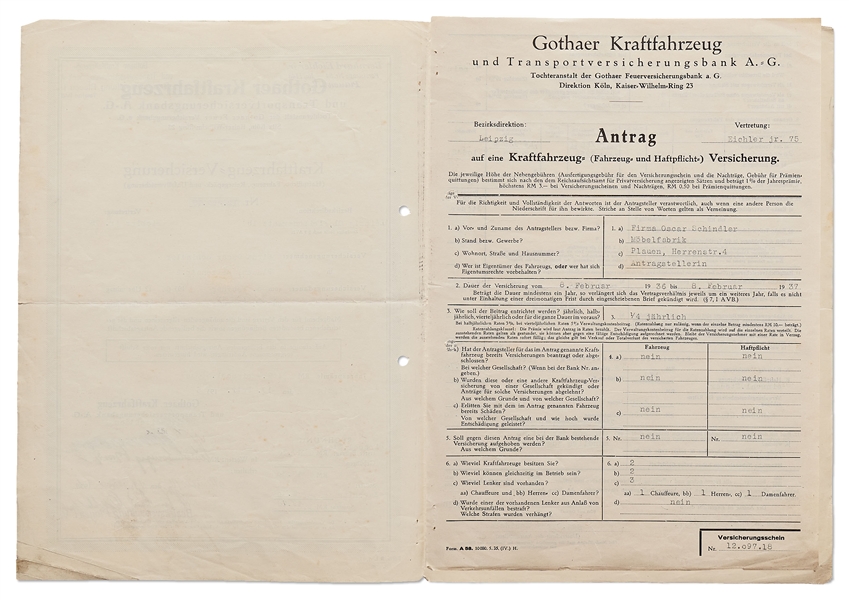 Gothaer Kraftfahrzeug
und Transportversicherungsbank A.=G.
Tochteranstalt der Gothaer Feuerversicherungsbank a. G.
Direktion Köln, Kaiser=Wilhelm=Ring 23
Bezirksdirektion: Vertretung:
Leipzig Antrag Eichler jr. 75
auf eine Kraftfahrzeug= (Fahrzeug= und Haftpflicht=) Versicherung.
Die jeweilige Höhe der Nebengebühren (Ausfertigungsgebühr für den Versicherungsschein und die Nachträge, Gebühr für Prämien=
quittungen) bestimmt sich nach den dem Reichsaufsichtsamt für Privatversicherung angezeigten Sätzen und beträgt 1% der Jahresprämie,
höchstens RM 3.— bei Versicherungsscheinen und Nachträgen, RM 0.50 bei Prämienquittungen.
Für die Richtigkeit und Vollständigkeit der Antworten ist der Antragsteller verantwortlich, auch wenn eine andere Person die
Niederschrift für ihn bewirkte. Striche an Stelle von Worten gelten als Verneinung.
1. a) Vor= und Zuname des Antragstellers bezw. Firma? 1. a) Firma Oscar Schindler
b) Stand bezw. Gewerbe? b) Möbelfabrik
c) Wohnort, Straße und Hausnummer? c) Plauen, Herrenstr.4
d) Wer ist Eigentümer des Fahrzeugs, oder wer hat sich d) Antragstellerin
Eigentumsrechte vorbehalten?
2. Dauer der Versicherung vom 8. Februar 1936 bis 8. Februar 1937
Beträgt die Dauer mindestens ein Jahr, so verlängert sich das Vertragsverhältnis jeweils um ein weiteres Jahr, falls es nicht
unter Einhaltung einer dreimonatigen Frist durch eingeschriebenen Brief gekündigt wird. (§ 7, I AVB.)
3. Wie soll der Beitrag entrichtet werden? jährlich, halb=
jährlich, vierteljährlich oder für die ganze Dauer im voraus? 3. 1/4 jährlich
Fahrzeug Haftpflicht
4. a) Hat der Antragsteller für das im Antrag genannte Kraft= 4. a) nein nein
fahrzeug bereits Versicherungen beantragt oder abge=
schlossen?
Bei welcher Gesellschaft? (Wenn bei der Bank Nr. an=
geben.)
b) Wurden diese oder eine andere Kraftfahrzeug=Ver= b) nein nein
sicherung von einer Gesellschaft gekündigt oder
Anträge für solche Versicherungen abgelehnt?
Aus welchem Grunde und von welcher Gesellschaft?
c) Erlitten Sie mit dem im Antrag genannten Fahrzeug c) nein nein
bereits Schäden?
Von welcher Gesellschaft und wie hoch wurde
Entschädigung geleistet?
5. Soll gegen diesen Antrag eine bei der Bank bestehende 5. Nr. nein Nr. nein
Versicherung aufgehoben werden?
Aus welchem Grunde?
6. a) Wieviel Kraftfahrzeuge besitzen Sie? 6. a) 2
b) Wieviel können gleichzeitig im Betrieb sein? b) 2
c) Wieviel Lenker sind vorhanden? c) 3
aa) Chauffeure und bb) Herren= cc) Damenfahrer? aa) 1 Chauffeure, bb) 1 Herren=, cc) 1 Damenfahrer.
d) Wurde einer der vorhandenen Lenker aus Anlaß von d) nein
Verkehrsunfällen bestraft?
Welche Strafen wurden verhängt?
Versicherungsschein
Form. A 58. 10000. 5. 35. (IV.) H. Nr. 12.097.18